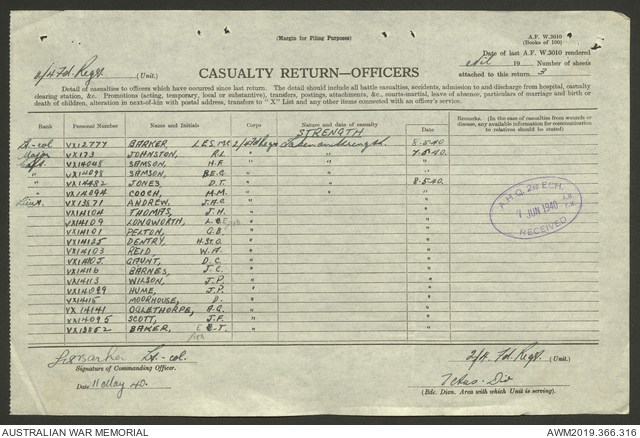 (Margin for Filing Purposes)
A.F. W.3010
(Books of 100)
2/4 Fd. Regt. (Unit.)
Date of last A.F. W.3010 rendered
Nil 19
CASUALTY RETURN—OFFICERS
Number of sheets
attached to this return 3
Detail of casualties to officers which have occurred since last return. The detail should include all battle casualties, accidents, admission to and discharge from hospital, casualty
clearing station, &c. Promotions (acting, temporary, local or substantive), transfers, postings, attachments, &c., courts-martial, leave of absence, particulars of marriage and birth or
death of children, alteration in next-of-kin with postal address, transfers to "X" List and any other items connected with an officer's service.
Rank Personal Number Name and Initials Corps Nature and date of casualty Date Remarks. (In the case of casualties from wounds or
disease, any available information for communication
to relatives should be stated)
STRENGTH
Lt-col VX12777 BARKER, L.E.S. 2/4 Fd Regt Taken on strength 8.5.40.
Major VX173 JOHNSTON, R.L. " " 7.5.40.
Capt. VX14048 SAMSON, H.F. " " "
" VX14098 SAMSON, B.E.C. " " "
" VX14482 JONES, D.T. " " 8.5.40.
" VX14094 COOCH, M.M. " "
Lieut. VX13571 ANDREW, J.A.C. " "
VX14104 THOMAS, J.H. " "
VX14109 LONGWORTH, " "
VX14101 PELTON, G.B. " "
VX14125 DENTRY, H.St.O. " "
VX14103 REID, W.A. " "
GAUNT, D.C. " "
VX14116 BARNES, J.C. " "
VX14113 WILSON, J.P. " "
VX14089 HUME, J.P. " "
VX14115 MOORHOUSE, D. " "
VX14141 OGLETHORPE, A.G. " "
VX14095 SCOTT, J.F. " "
VX13852 BAKER, E.T. " "
A.H.Q. 2nd ECH.
1 JUN 1940
A.M.
P.M.
RECEIVED
Lt.-col.
Signature of Commanding Officer.
Date 11 May 40.
2/4 Fd Regt. (Unit.)
7 Aus. Div
(Bde. Divn. Area with which Unit is serving).
AUSTRALIAN WAR MEMORIAL
AWM2019.366.316